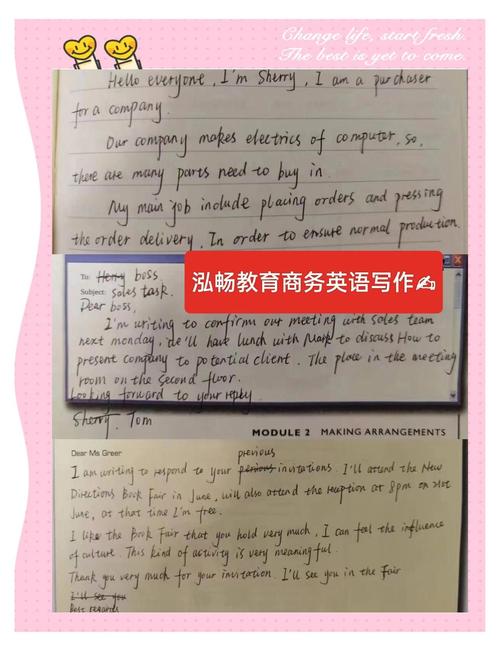 Change life, start fresh.
The best is yet to come.
Hello everyone, I'm Sherry, I am a purchaser
for a company.
Our company makes electrics of computer, so,
there are many parts need to buy in.
My main job include placing orders and pressing
the order delivery. In order to ensure normal production.
泓畅教育商务英语写作✍
To: Henry boss
Subject: sales task.
Dear boss,
I'm writing to confirm our meeting with sales team
next monday, We'll have lunch with Mark to discuss How to
present company to potential client. The place in the meeting
room on the second floor.
Looking forward to your reply
Sherry. Tom
MODULE 2 MAKING ARRANGEMENTS
Dear Ms Greer
previous
I am writing to respond to your invitations. I'll attend the New
Directions Book Fair in June, will also attend the reception at 8pm on 21st
June, at that time I'm free.
I like the Book Fair that you hold very much, I can feel the influence
of culture. This kind of activity is very meaningful.
Thank you very much for your invitation. I'll see you in the Fair
I'll see you
Best regards